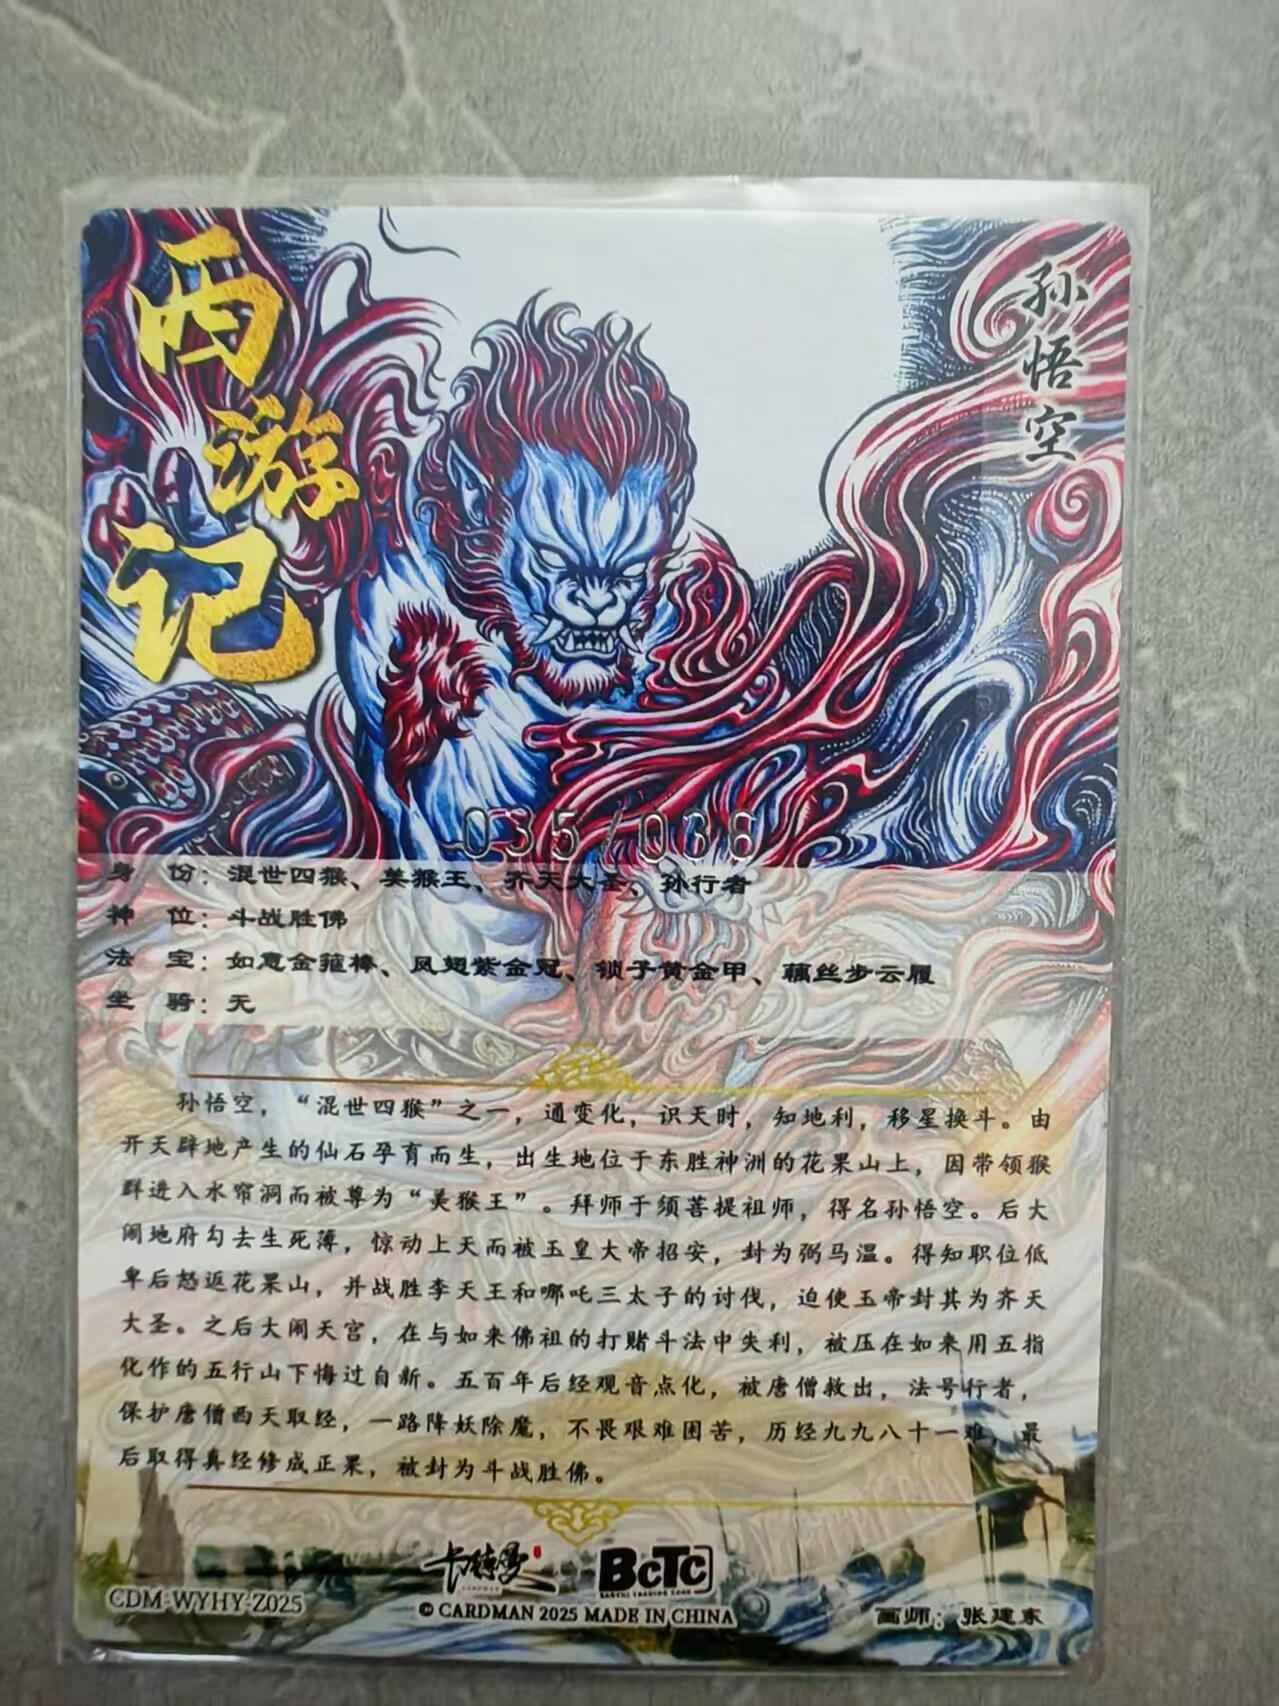 西游记
孙悟空
035/036
身 份：混世四猴、美猴王、齐天大圣、孙行者
神 位：斗战胜佛
法 宝：如意金箍棒、凤翅紫金冠、锁子黄金甲、藕丝步云履
坐 骑：无
孙悟空，“混世四猴”之一，通变化，识天时，知地利，移星换斗。由
开天辟地产生的仙石孕育而生，出生地位于东胜神洲的花果山上，因带领猴
群进入水帘洞而被尊为“美猴王”。拜师于须菩提祖师，得名孙悟空。后大
闹地府勾去生死薄，惊动上天而被玉皇大帝招安，封为弼马温。得知职位低
卑后怒返花果山，并战胜李天王和哪吒三太子的讨伐，迫使玉帝封其为齐天
大圣。之后大闹天宫，在与如来佛祖的打赌斗法中失利，被压在如来用五指
化作的五行山下悔过自新。五百年后经观音点化，被唐僧救出，法号行者，
保护唐僧西天取经，一路降妖除魔，不畏艰难困苦，历经九九八十一难，最
后取得真经修成正果，被封为斗战胜佛。
卡德曼
BCTC
CDM-WYHY-Z025
© CARDMAN 2025 MADE IN CHINA
画师：张建东